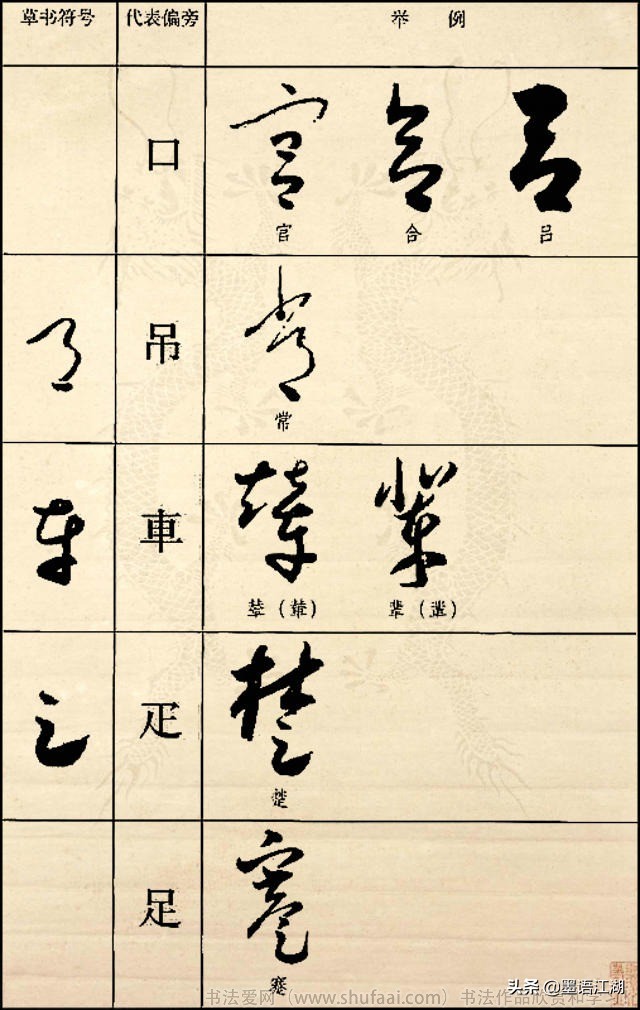 草书符号 代表偏旁 举例
口
官 合 吕
吊
常
車
輦（輦）
疋
楚
足
蹇
书法爱网（www.shufaai.com）书法作品欣赏和学习
头条 @墨语江湖